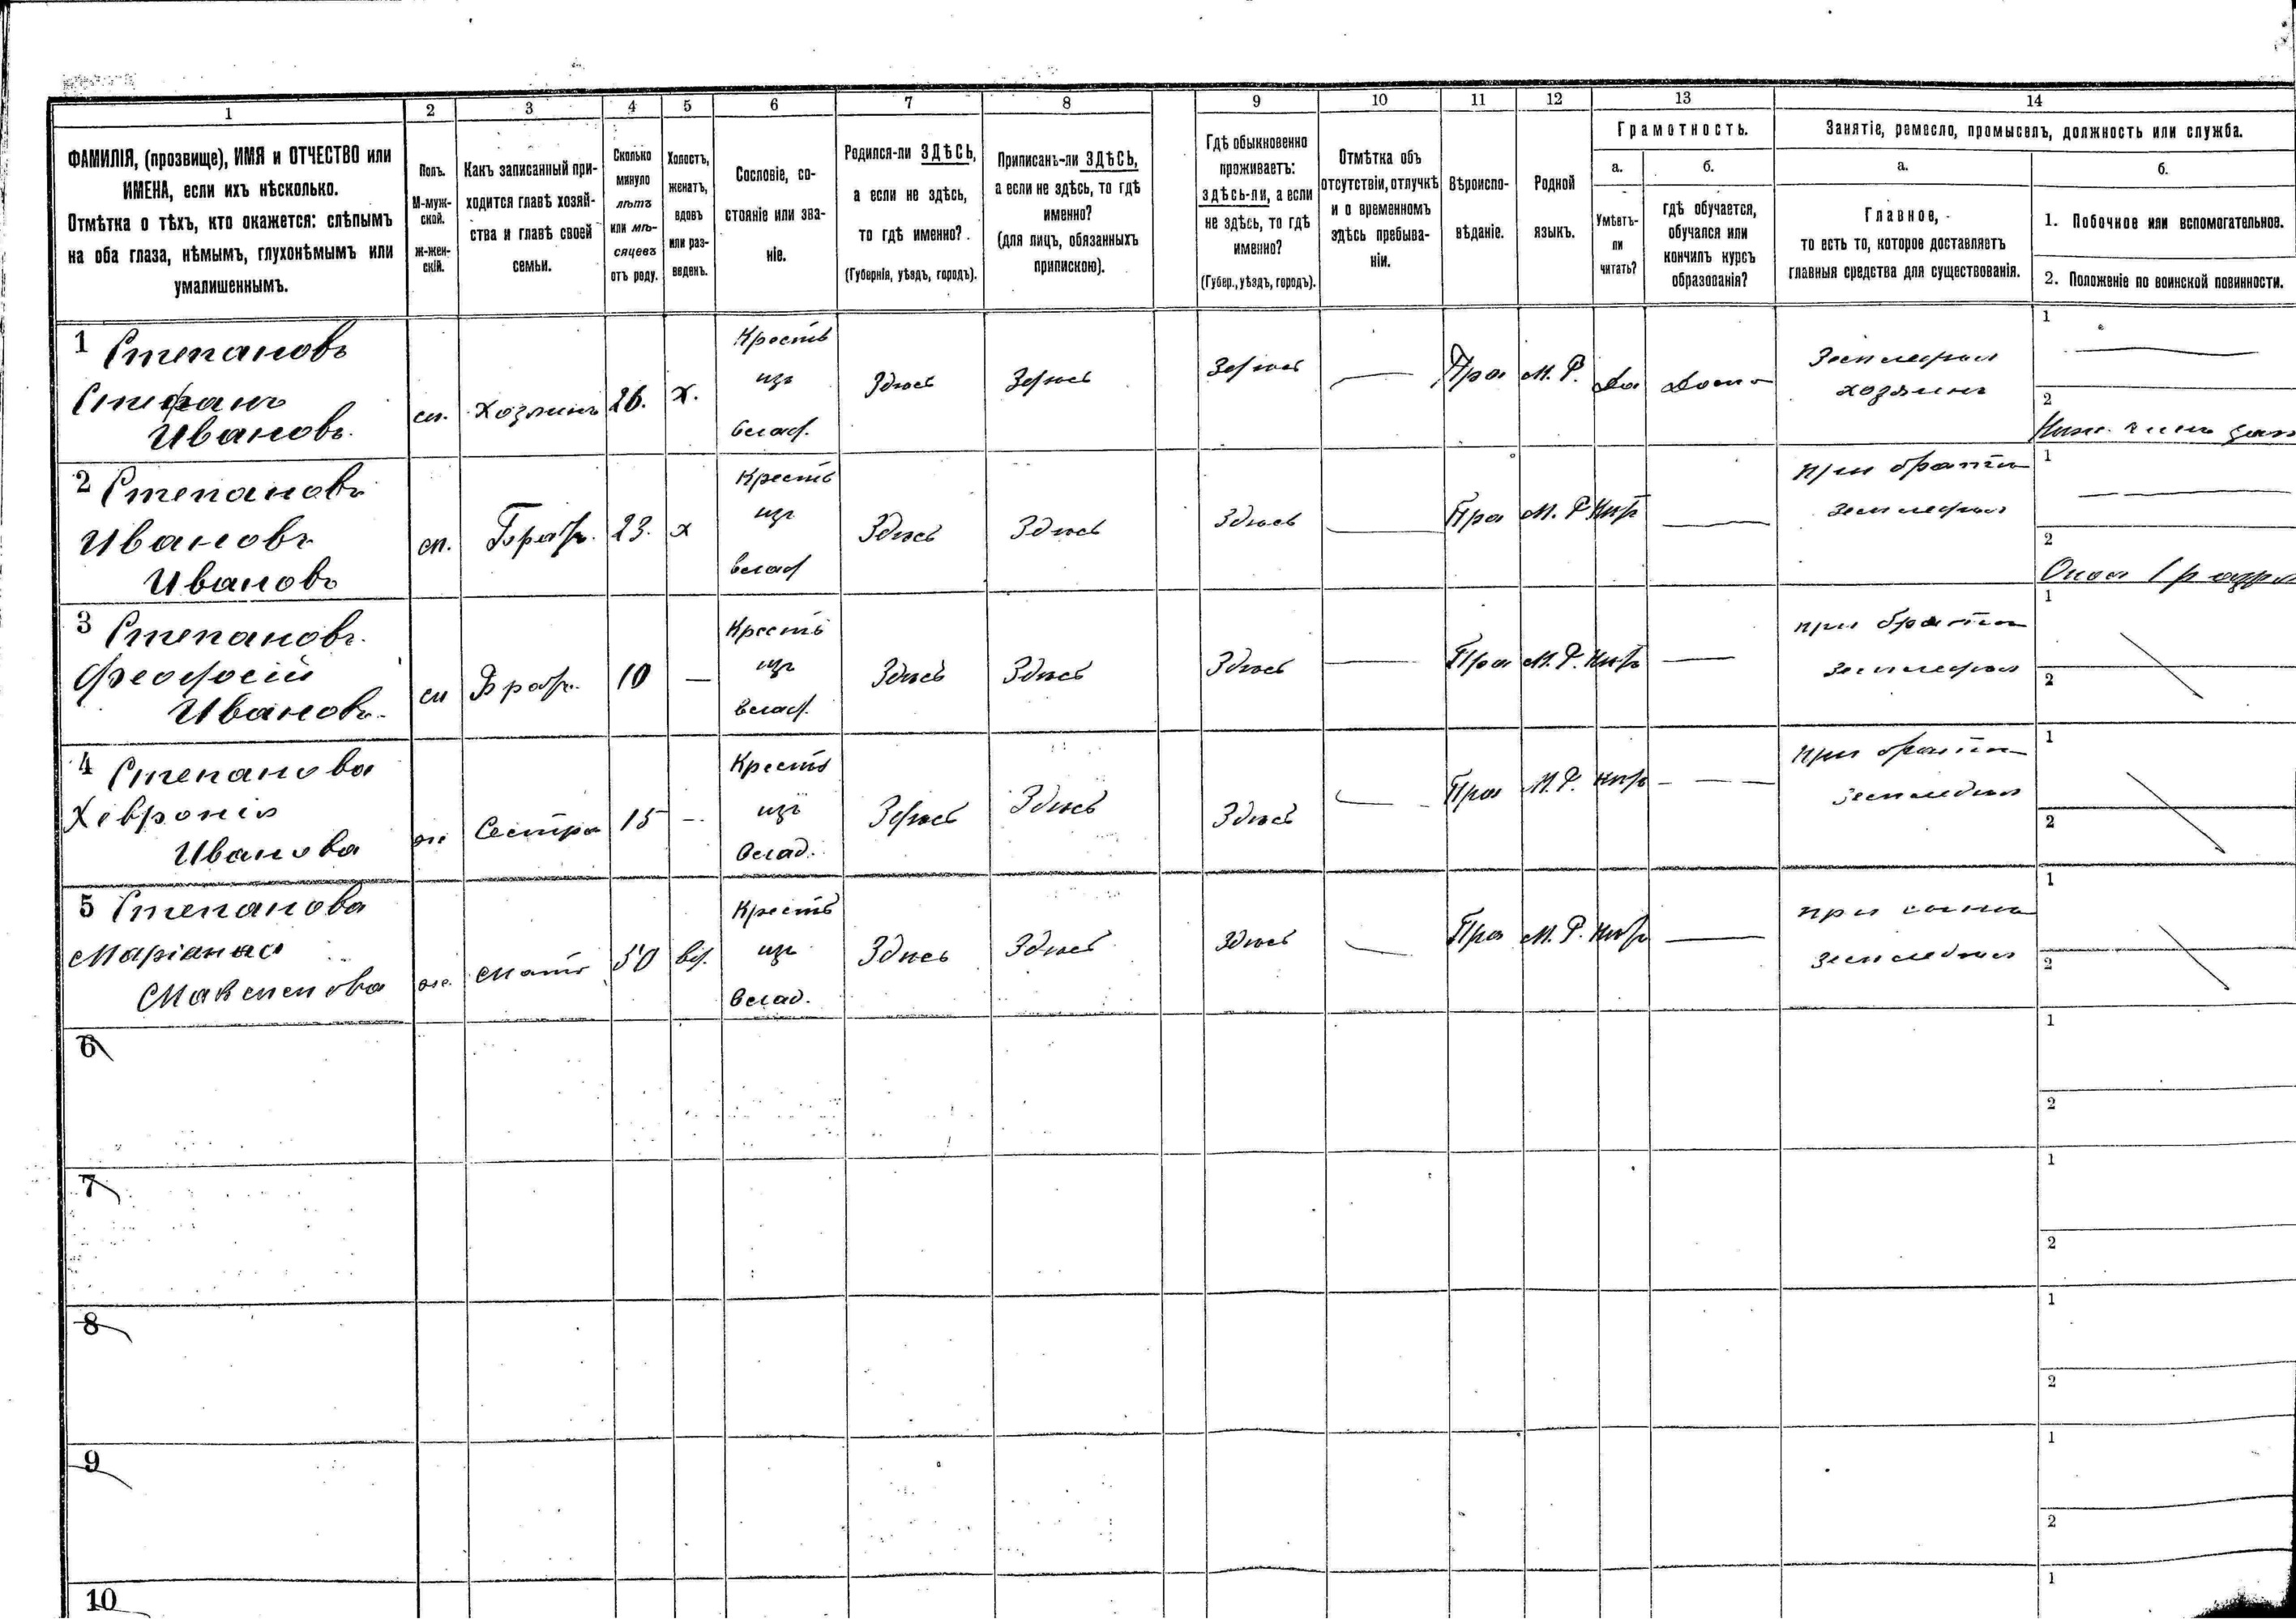 1 2 3 4 5 6 7 8 9 10 11 12 13 14
ФАМИЛІЯ, (прозвище), ИМЯ и ОТЧЕСТВО или
ИМЕНА, если ихъ нѣсколько.
Отмѣтка о тѣхъ, кто окажется: слѣпымъ
на оба глаза, нѣмымъ, глухонѣмымъ или
умалишеннымъ.
Полъ.
М-муж-
ской.
ж-жен-
скій.
Какъ записанный при-
ходится главѣ хозяй-
ства и главѣ своей
семьи.
Сколько
минуло
лѣтъ
или мѣ-
сяцевъ
отъ роду.
Холостъ,
женатъ,
вдовъ
или раз-
веденъ.
Сословіе, со-
стояніе или зва-
ніе.
Родился-ли ЗДѢСЬ,
а если не здѣсь,
то гдѣ именно?.
(Губернія, уѣздъ, городъ).
Приписанъ-ли ЗДѢСЬ,
а если не здѣсь, то гдѣ
именно?
(для лицъ, обязанныхъ
припискою).
Гдѣ обыкновенно
проживаетъ:
здѣсь-ли, а если
не здѣсь, то гдѣ
именно?
(Губер., уѣздъ, городъ).
Отмѣтка объ
отсутствіи, отлучкѣ
и о временномъ
здѣсь пребыва-
ніи.
Вѣроиспо-
вѣданіе.
Родной
языкъ.
Грамотность.
а.
Умѣетъ-
ли
читать?
б.
гдѣ обучается,
обучался или
кончилъ курсъ
образованія?
Занятіе, ремесло, промыселъ, должность или служба.
а.
Главное,
то есть то, которое доставляетъ
главныя средства для существованія.
б.
1. Побочное или вспомогательное.
2. Положеніе по воинской повинности.
1 Степановъ
Стефанъ
Ивановъ.
м. Хозяинъ 26. х.
Кресть
изъ
влад.
Здѣсь Здѣсь Здѣсь — Пра М. Р. Да Дома
Земледѣл
хозяинъ
1
2
Ниж. чинъ
2 Степановъ
Ивановъ
Ивановъ
м. Братъ. 23. х
Кресть
изъ
влад
Здѣсь Здѣсь Здѣсь — Пра М. Р. Нѣтъ —
при братѣ
земледѣл
1
2
3 Степановъ.
Феодосій
Ивановъ.
м Братъ. 10 —
Кресть
изъ
влад.
Здѣсь Здѣсь Здѣсь — Пра М. Р. Нѣтъ —
при братѣ
земледѣл
1
2
4 Степанова
Хевронія
Иванова
ж Сестра 15 —
Кресть
изъ
влад.
Здѣсь Здѣсь Здѣсь — Пра М. Р. Нѣтъ —
при братѣ
земледѣл
1
2
5 Степанова
Маріанна
Максимова
ж. Мать 50 вд.
Кресть
изъ
влад.
Здѣсь Здѣсь Здѣсь — Пра М. Р. Нѣтъ —
при сынѣ
земледѣл
1
2
6
1
2
7
1
2
8
1
2
9
1
2
10
1